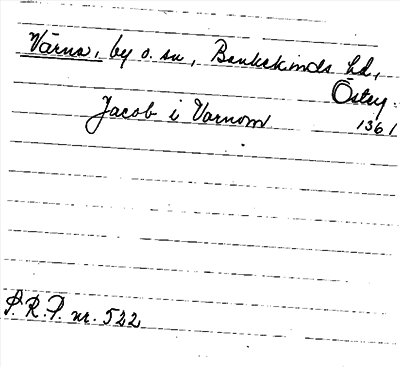 Värna, by o. sn, Bankekinds hd,
Östg.
Jacob i Varnom 1361
S.R.P. nr. 522